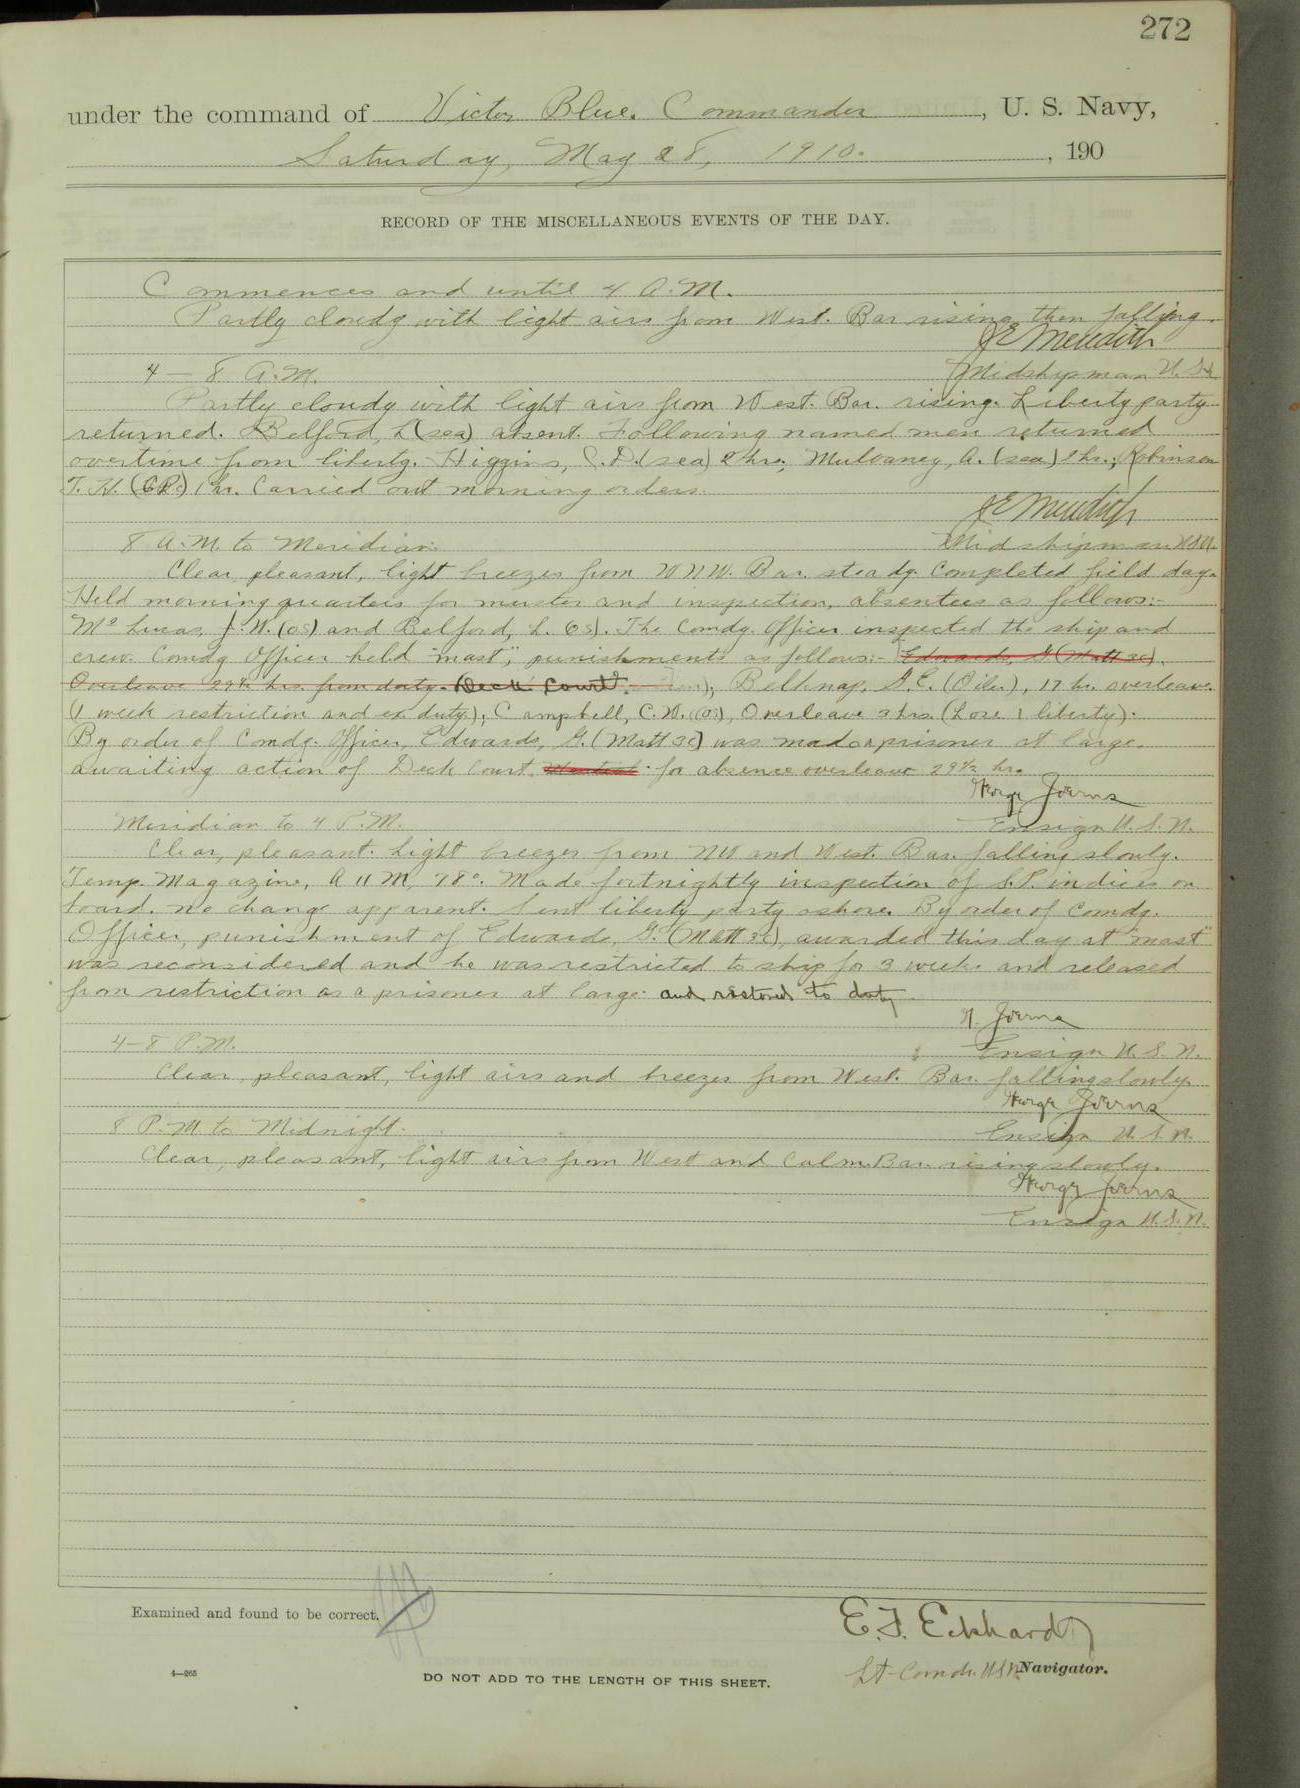 272
under the command of Victor Blue, Commander, U. S. Navy,
Saturday, May 28, 1910. , 190
RECORD OF THE MISCELLANEOUS EVENTS OF THE DAY.
Commences and until 4 A.M.
Partly cloudy with light airs from West. Bar rising then falling.
J E Meredith
4 – 8 A.M. Midshipman U.S.N.
Partly cloudy with light airs from West. Bar. rising. Liberty party
returned. Belford, L (sea) absent. Following named men returned
overtime from liberty. Higgins, C.D. (sea) 2 hrs., Mulvaney, A. (sea) 2 hr.; Robinson
T. H. (CP.) 1 hr. Carried out morning orders.
J E Meredith
8 A.M. to Meridian: Midshipman U.S.N.
Clear, pleasant, light breezes from WNW. Bar. steady. Completed field day.
Held morning quarters for muster and inspection, absentees as follows:-
McLucas, J. W. (OS) and Belford, L. (S). The Comdg. Officer inspected the ship and
crew. Comdg Officer held "mast", punishments as follows:- Edwards, G (Matt 3c).
Overleave 29½ hrs. from duty. (Deck Court). Belknap, G.E. (Oiler), 17 hr. overleave.
(1 week restriction and ex. duty.); Campbell, C.W. (OS), Overleave 3 hrs. (Lose 1 liberty).
By order of Comdg. Officer, Edwards, G. (Matt 3c) was made a prisoner at large.
awaiting action of Deck Court, for absence overleave 29½ hr.
George Joerns
Meridian to 4 P.M. Ensign U.S.N.
Clear, pleasant. Light breezes from NW and West. Bar. falling slowly.
Temp. Magazine, A 11 M, 78°. Made fortnightly inspection of S.P. indices on
board. No change apparent. Sent liberty party ashore. By order of Comdg.
Officer, punishment of Edwards, G. (Matt 3c), awarded this day at "mast"
was reconsidered and he was restricted to ship for 3 weeks and released
from restriction as a prisoner at large and restored to duty.
G. Joerns
4–8 P.M. Ensign U.S.N.
Clear, pleasant, light airs and breezes from West. Bar. falling slowly.
George Joerns
8 P.M. to Midnight. Ensign U.S.N.
Clear, pleasant, light airs from West and Calm. Bar. rising slowly.
George Joerns
Ensign U.S.N.
Examined and found to be correct.
E. F. Eckhardt
Lt-Comdr. USN Navigator.
4—265
DO NOT ADD TO THE LENGTH OF THIS SHEET.